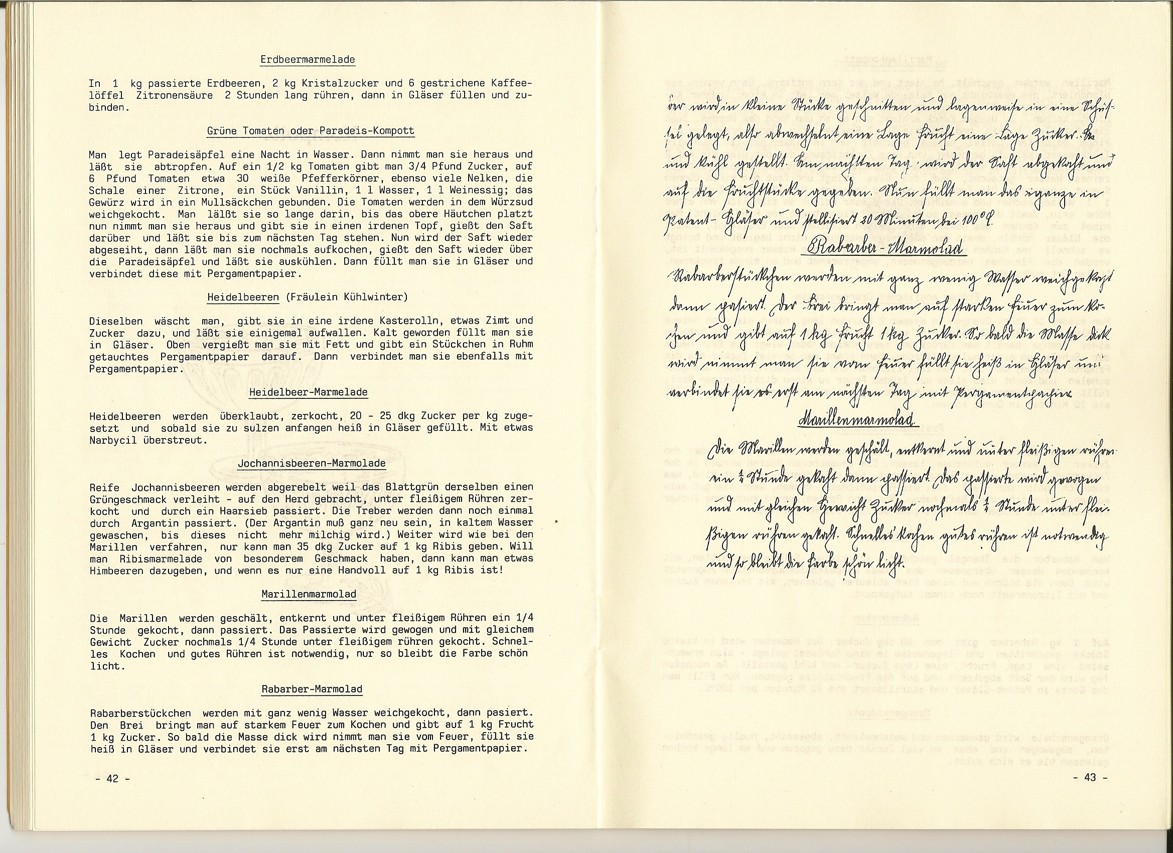 Erdbeermarmelade
In 1 kg passierte Erdbeeren, 2 kg Kristalzucker und 6 gestrichene Kaffee-
löffel Zitronensäure 2 Stunden lang rühren, dann in Gläser füllen und zu-
binden.
Grüne Tomaten oder Paradeis-Kompott
Man legt Paradeisäpfel eine Nacht in Wasser. Dann nimmt man sie heraus und
läßt sie abtropfen. Auf ein 1/2 kg Tomaten gibt man 3/4 Pfund Zucker, auf
6 Pfund Tomaten etwa 30 weiße Pfefferkörner, ebenso viele Nelken, die
Schale einer Zitrone, ein Stück Vanillin, 1 l Wasser, 1 l Weinessig; das
Gewürz wird in ein Mullsäckchen gebunden. Die Tomaten werden in dem Würzsud
weichgekocht. Man läßt sie so lange darin, bis das obere Häutchen platzt
nun nimmt man sie heraus und gibt sie in einen irdenen Topf, gießt den Saft
darüber und läßt sie bis zum nächsten Tag stehen. Nun wird der Saft wieder
abgeseiht, dann läßt man sie nochmals aufkochen, gießt den Saft wieder über
die Paradeisäpfel und läßt sie auskühlen. Dann füllt man sie in Gläser und
verbindet diese mit Pergamentpapier.
Heidelbeeren (Fräulein Kühlwinter)
Dieselben wäscht man, gibt sie in eine irdene Kasterolln, etwas Zimt und
Zucker dazu, und läßt sie einigemal aufwallen. Kalt geworden füllt man sie
in Gläser. Oben vergießt man sie mit Fett und gibt ein Stückchen in Ruhm
getauchtes Pergamentpapier darauf. Dann verbindet man sie ebenfalls mit
Pergamentpapier.
Heidelbeer-Marmelade
Heidelbeeren werden überklaubt, zerkocht, 20 - 25 dkg Zucker per kg zuge-
setzt und sobald sie zu sulzen anfangen heiß in Gläser gefüllt. Mit etwas
Narbycil überstreut.
Jochannisbeeren-Marmolade
Reife Jochannisbeeren werden abgerebelt weil das Blattgrün derselben einen
Grüngeschmack verleiht - auf den Herd gebracht, unter fleißigem Rühren zer-
kocht und durch ein Haarsieb passiert. Die Treber werden dann noch einmal
durch Argantin passiert. (Der Argantin muß ganz neu sein, in kaltem Wasser
gewaschen, bis dieses nicht mehr milchig wird.) Weiter wird wie bei den
Marillen verfahren, nur kann man 35 dkg Zucker auf 1 kg Ribis geben. Will
man Ribismarmelade von besonderem Geschmack haben, dann kann man etwas
Himbeeren dazugeben, und wenn es nur eine Handvoll auf 1 kg Ribis ist!
Marillenmarmolad
Die Marillen werden geschält, entkernt und unter fleißigem Rühren ein 1/4
Stunde gekocht, dann passiert. Das Passierte wird gewogen und mit gleichem
Gewicht Zucker nochmals 1/4 Stunde unter fleißigem rühren gekocht. Schnel-
les Kochen und gutes Rühren ist notwendig, nur so bleibt die Farbe schön
licht.
Rabarber-Marmolad
Rabarberstückchen werden mit ganz wenig Wasser weichgekocht, dann pasiert.
Den Brei bringt man auf starkem Feuer zum Kochen und gibt auf 1 kg Frucht
1 kg Zucker. So bald die Masse dick wird nimmt man sie vom Feuer, füllt sie
heiß in Gläser und verbindet sie erst am nächsten Tag mit Pergamentpapier.
- 42 -
ber wird in kleine Stücke geschnitten und lagenweise in eine Schüs-
sel gelegt, also abwechselnt eine Lage Frucht eine Lage Zucker.
und kühl gestellt. Am nächsten Tag wird der Saft abgekocht und
auf die Fruchtstücke gegeben. Nun füllt man das ganze in
Patent-Gläser und stellisiert 20 Minuten bei 100°
Rabarber-Marmolad
Rabarberstückchen werden mit ganz wenig Wasser weichgekocht
dann pasiert. Der Brei bringt man auf starken Feuer zum ko-
chen und gibt auf 1 kg Frucht 1 kg Zucker. So bald die Masse dick
wird nimmt man sie vom Feuer füllt sie heiß in Gläser und
verbindet sie erst am nächsten Tag mit Pergamentpapier
Marillenmarmolad
Die Marillen werden geschält, entkernt und unter fleißigen rühren
ein ¼ Stunde gekocht dann passiert. Das passierte wird gewogen
und mit gleichen Gewicht Zucker nochmals ¼ Stunde unter flei-
ßigen rühren gekocht. Schnelles kochen gutes rühren ist notwendig
und so bleibt die Farbe schön licht.
- 43 -